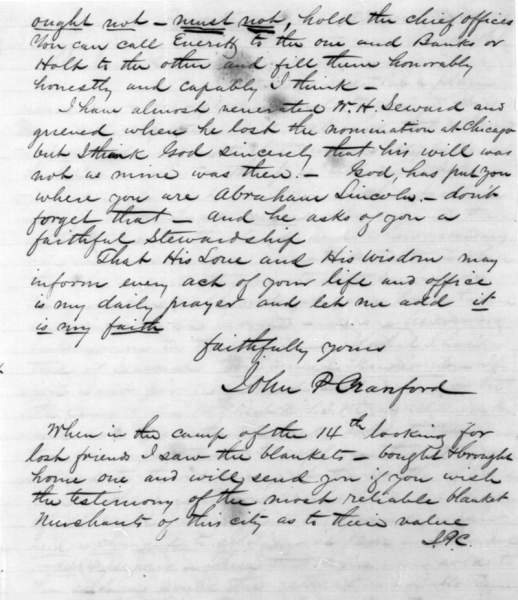 ought not – must not, hold the chief offices
You can call Everett to the one and Banks or
Holt to the other and fill them honorably
honestly and capably I think –
I have almost venerated Wm. H. Seward and
grieved when he lost the nomination at Chicago
but I thank God sincerely that his will was
not as mine was then. – God, has put you
where you are Abraham Lincoln, – don't
forget that – and he asks of you a
faithful Stewardship
That His Love and His Wisdom may
inform every act of your life and office
is my daily prayer and let me add it
is my faith
Faithfully yours
John P Cranford
When in the camp of the 14th looking for
lost friends I saw the blankets – bought & brought
home one and will send you if you wish
the testimony of the most reliable blanket
Merchants of this city as to their value
J.P.C.